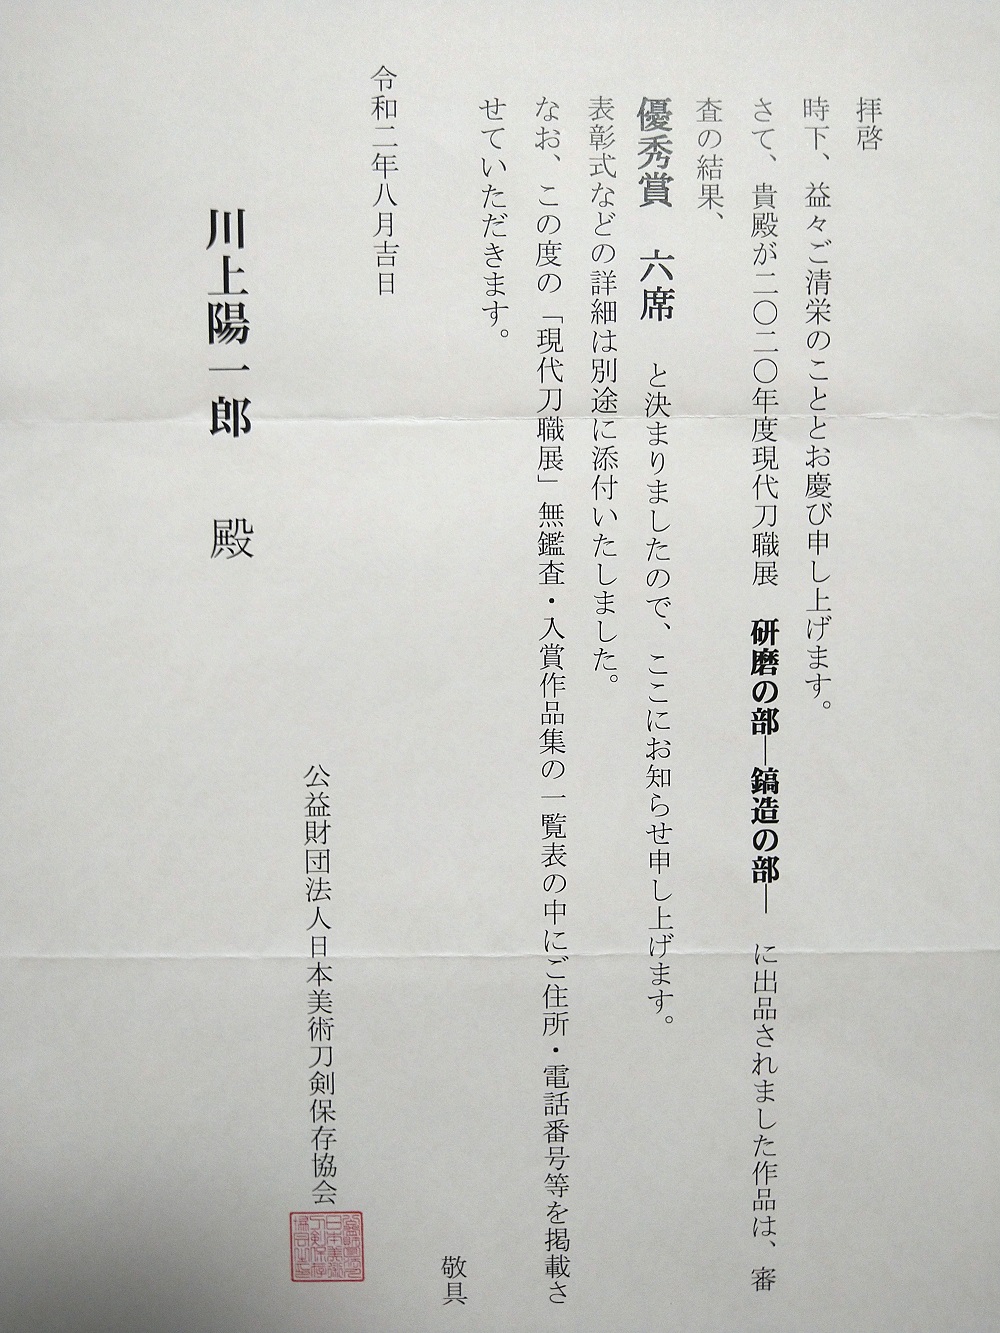 拝啓
時下、益々ご清栄のこととお慶び申し上げます。
さて、貴殿が二〇二〇年度現代刀職展　研磨の部―鎬造の部―　に出品されました作品は、審
査の結果、
優秀賞　六席　と決まりましたので、ここにお知らせ申し上げます。
表彰式などの詳細は別途に添付いたしました。
なお、この度の「現代刀職展」無鑑査・入賞作品集の一覧表の中にご住所・電話番号等を掲載さ
せていただきます。
敬具
令和二年八月吉日
公益財団法人日本美術刀剣保存協会
川上陽一郎　殿